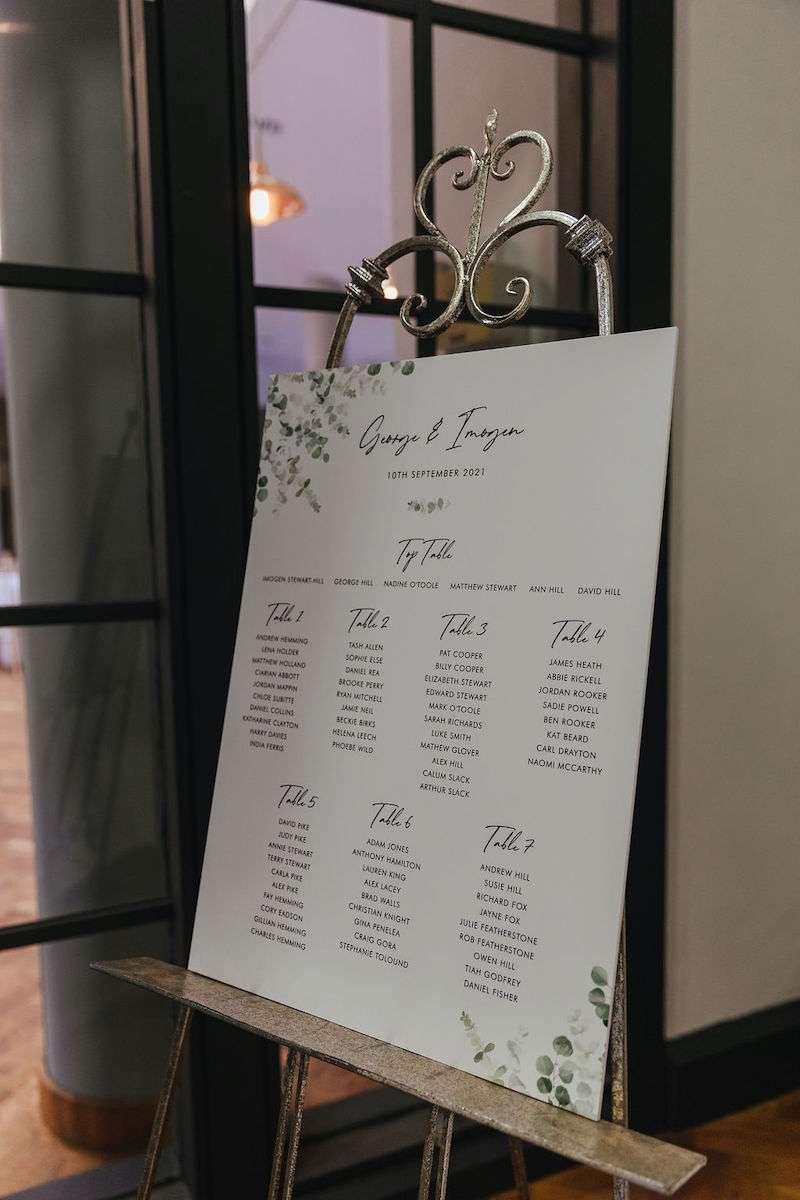 George & Imogen
10TH SEPTEMBER 2021
Top Table
IMOGEN STEWART-HILL GEORGE HILL NADINE O'TOOLE MATTHEW STEWART ANN HILL DAVID HILL
Table 1
ANDREW HEMMING
LENA HOLDER
MATTHEW HOLLAND
CIARIAN ABBOTT
JORDAN MAPPIN
CHLOE SUBITTE
DANIEL COLLINS
KATHARINE CLAYTON
HARRY DAVIES
INDIA FERRIS
Table 2
TASH ALLEN
SOPHIE ELSE
DANIEL REA
BROOKE PERRY
RYAN MITCHELL
JAMIE NEIL
BECKIE BIRKS
HELENA LEECH
PHOEBE WILD
Table 3
PAT COOPER
BILLY COOPER
ELIZABETH STEWART
EDWARD STEWART
MARK O'TOOLE
SARAH RICHARDS
LUKE SMITH
MATHEW GLOVER
ALEX HILL
CALUM SLACK
ARTHUR SLACK
Table 4
JAMES HEATH
ABBIE RICKELL
JORDAN ROOKER
SADIE POWELL
BEN ROOKER
KAT BEARD
CARL DRAYTON
NAOMI MCCARTHY
Table 5
DAVID PIKE
JUDY PIKE
ANNIE STEWART
TERRY STEWART
CARLA PIKE
ALEX PIKE
FAY HEMMING
CORY EADSON
GILLIAN HEMMING
CHARLES HEMMING
Table 6
ADAM JONES
ANTHONY HAMILTON
LAUREN KING
ALEX LACEY
BRAD WALLS
CHRISTIAN KNIGHT
GINA PENELEA
CRAIG GOBA
STEPHANIE TOLOUND
Table 7
ANDREW HILL
SUSIE HILL
RICHARD FOX
JAYNE FOX
JULIE FEATHERSTONE
ROB FEATHERSTONE
OWEN HILL
TIAH GODFREY
DANIEL FISHER